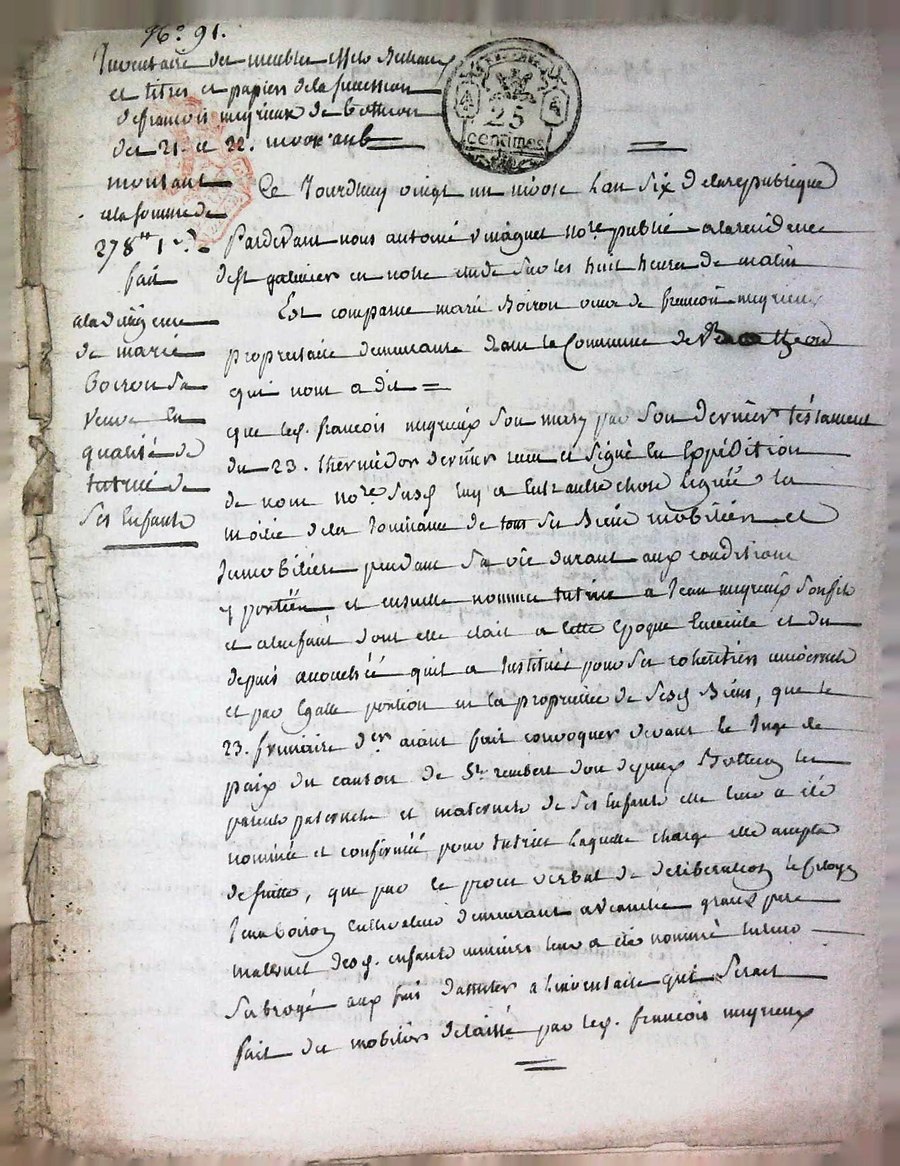 N.° 91.
Inventaire des meubles effets
et titres et papiers de la succession
de françois migrieux de Botheon
des 21. et 22. nivose an 6
montant
a la somme de
278
fait
a la diligence
de marie
Boiron sa
veuve en
qualité de
tutrice de
ses Enfants
25
centimes
Ce Jourdhuy vingt un nivose l'an six de la republique
Pardevant nous antoine not.re public a la residence
dest galmier en notre etude sur les huit heures du matin
Est comparue marie Boiron veuve de françois migrieux
proprietaire demeurante dans la Commune de
qui nous a dit =
que led. françois migrieux son mary par son dernier testament
du 23. thermidor dernier recu et signé en Expédition
de nous not.re susd. luy a Entr'autre chose leguée la
moitié de la Jouissance de tout ses Biens mobiliers et
Immobiliers pendant sa vie durant aux conditions
y portées et ensuitte nommée tutrice a Jean migrieux son fils
et a lenfant dont elle etait a cette Epoque Enceinte et du
depuis accouchée quil a Institués pour ses heritiers universels
et par Egalle portion en la propriété de sesd. Biens, que le
23. frimaire d.er aiant fait convoquer devant le Juge de
paix du canton de S.t rembert Botheon les
parents paternels et maternels de ses Enfants elle leur a été
nommée et confirmée pour tutrice laquelle charge elle accepta
de suitte, que par le proces verbal de deliberation le Citoyen
Jean Boiron Cultivateur demeurant a grand pere
maternel desd. enfants mineurs leur a été nommé tuteur
subrogé aux fins d'assister a l'inventaire qui serait
fait du mobilier delaissé par led. françois migrieux